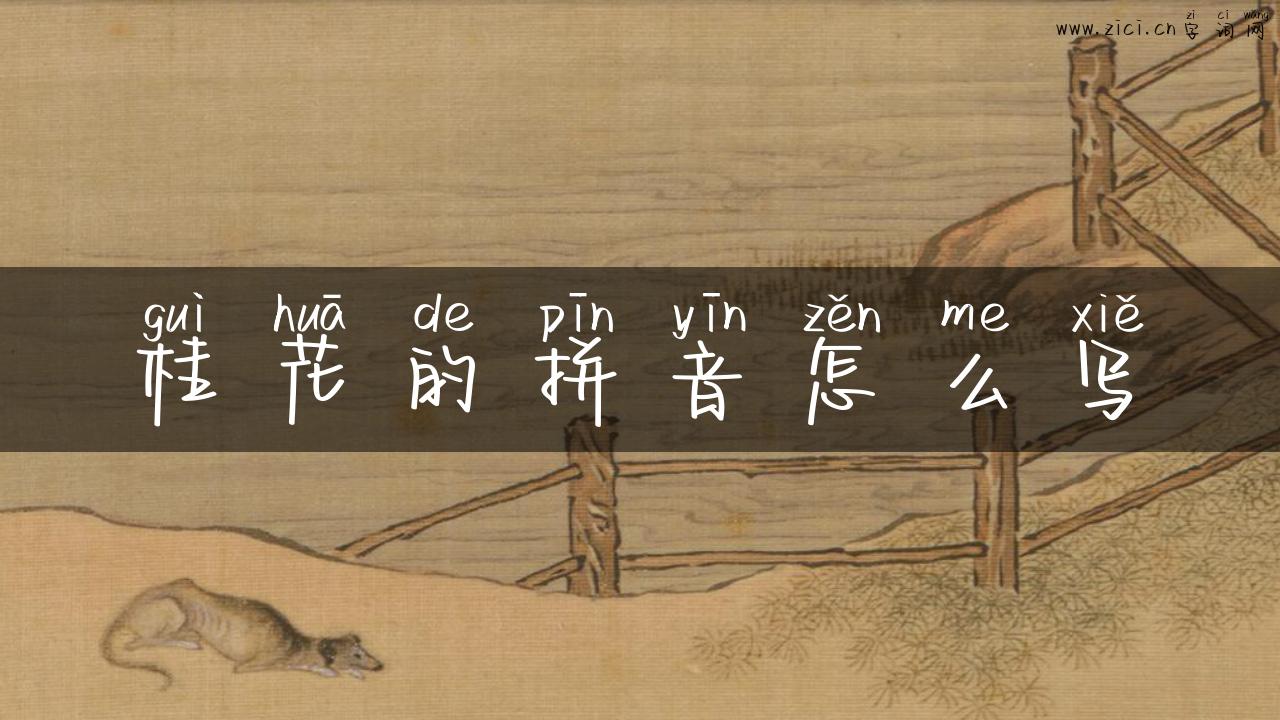 zi ci wang
www.zici.cn 字词网
guì huā de pīn yīn zěn me xiě
桂花的拼音怎么写